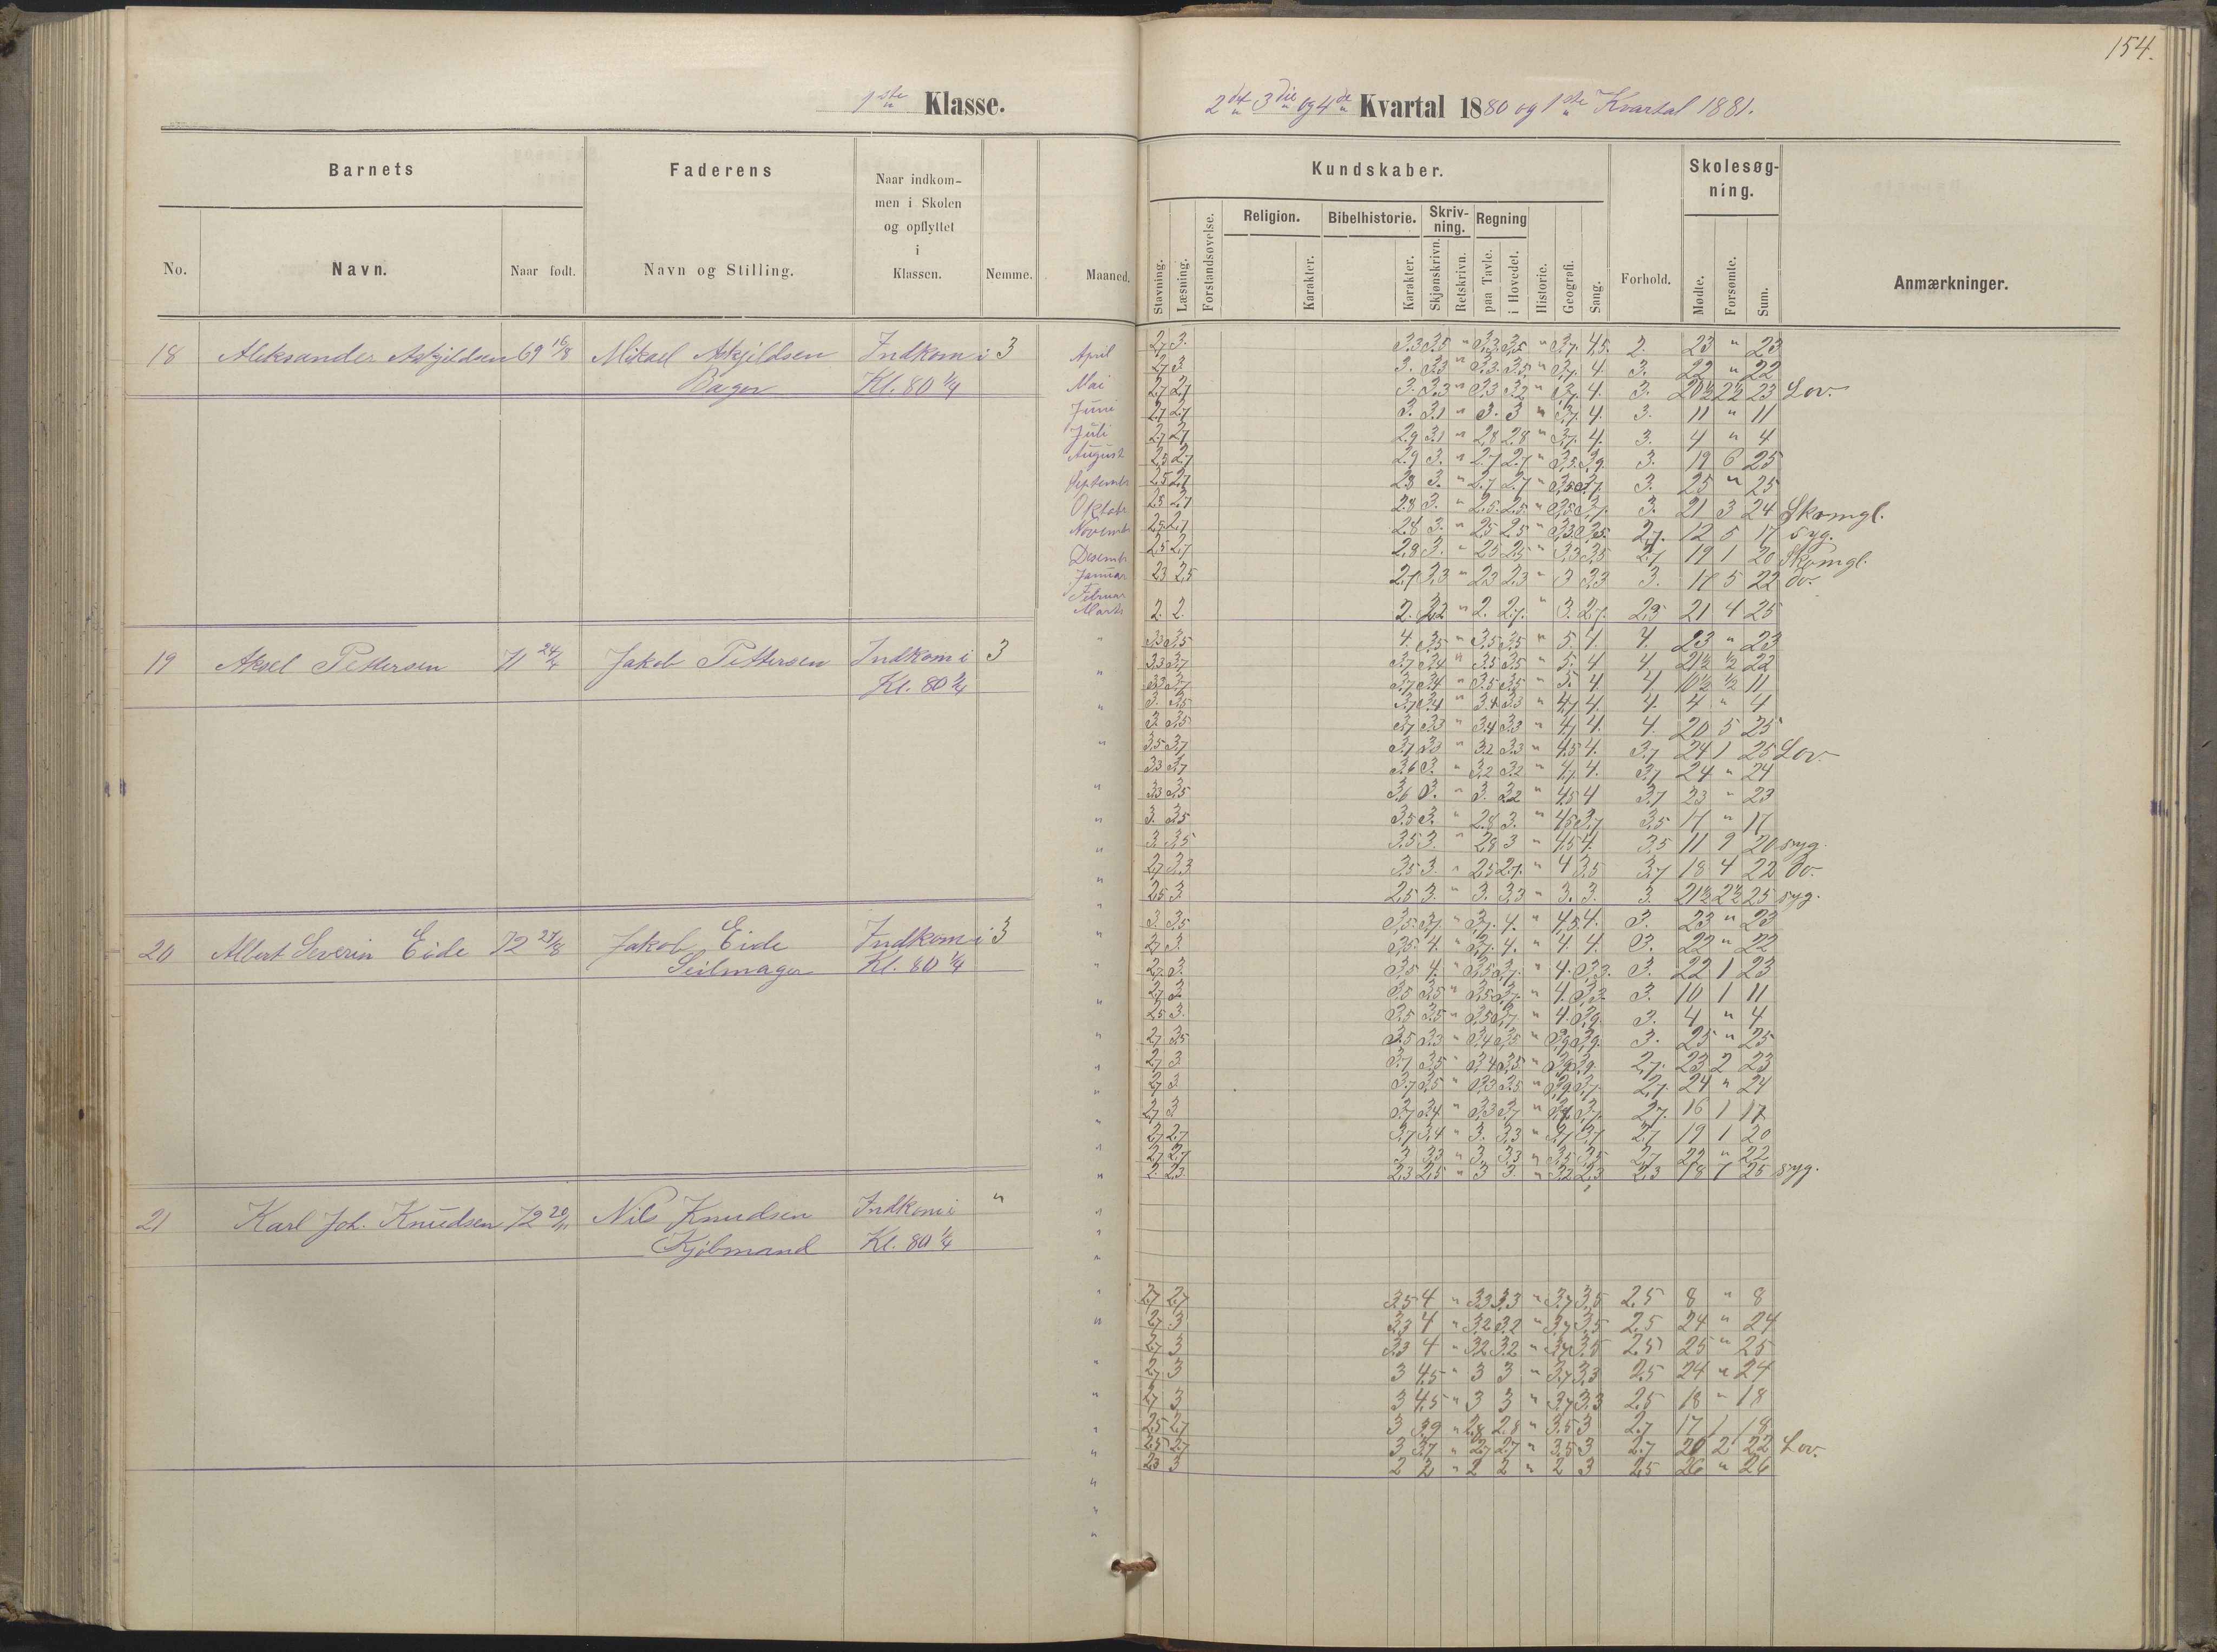 154.
1ste Klasse.
2det 3die og 4de Kvartal 1880 og 1ste Kvartal 1881.
Barnets
Faderens
Naar indkom-
men i Skolen
og opflyttet
i
Klassen.
No.
Navn.
Naar født.
Navn og Stilling.
Nemme.
Maaned.
Kundskaber.
Skolesøg-
ning.
Religion.
Bibelhistorie.
Skriv-
ning.
Regning
Stavning.
Læsning.
Forstandsøvelse.
Karakter.
Karakter.
Skjønskrivn.
Retskrivn.
paa Tavle.
i Hovedet.
Historie.
Geografi.
Sang.
Forhold.
Mødte.
Forsømte.
Sum.
Anmærkninger.
18 Aleksander Askjildsen 69 16/8 Mikael Askjildsen Indkom i 3
Bager Kl. 80 1/4
April
Mai
Juni
Juli
August
Septembr
Oktobr
Novembr
Desembr
Januar
Februar
Marts
2,7 3. 3.3 3.5 " 3.3. 3.5 " 3,7. 4,5. 2. 23 " 23
2,7 3 3. 3.3 " 3.3. 3.3. " 3,7. 4. 3. 22 " 22
2,7 2,7 3. 3.3 " 3.3 3.2 " 3,7. 4. 3. 20½ 2½ 23 Lov.
2,7 2,7 3. 3.1 " 3. 3 " 3,7. 4. 3. 11 " 11
2,7 2,7 2.9 3.1 " 2,8 2.8 " 3,7. 4. 3. 4 " 4
2,5 2,7 2.9 3. " 2,7 2,7 " 3,5. 3,9. 3. 19 6 25
2,5 2,7 2.8 3. " 2,7 2,7 " 3,5 3,7 3. 25 " 25
2,5 2,7 2.8 3. " 2.5. 2.5. " 3,5 3,7. 3. 21 3 24 Skomgl.
2,5 2,7 2.8 3. " 2.5 2.5 " 3.3 3.5. 2,7. 12 5 17 syg.
2,5 2,7 2.8 3. " 2.5 2.5 " 3.3 3.5 2,7 19 1 20 Skomgl.
2.3 2.5 2,7 3.3 " 2.3 2.3 " 3 3.3 3. 17 5 22 do.
2. 2. 2. 2.2 " 2. 2,7. " 3. 2,7. 2,3 21 4 25
19 Aksel Pettersen 71 24/4 Jakob Pettersen Indkom i 3
Kl. 80 1/4
3.3 3.5 4. 3.5 " 3.5 3.5 " 5. 4. 4. 23 " 23
3.3 3,7 3,7 3,4 " 3.5 3.5 " 5. 4 4 21½ ½ 22
3.3 3,7 3,7 3,4 " 3.5 3.5 " 5. 4. 4 10½ ½ 11
3. 3.5 3,7 3.4 " 3.4 3.3 " 4,7 4. 4. 4 " 4
3. 3.5 3,7 3.3 " 3.4 3.3 " 4,7 4. 4. 20 5 25
3.5 3,7 3,7 3.3 " 3.2 3.3 " 4,5 4. 3,7 24 1 25 Lov.
3.3 3,7 3.6 3. " 3.2 3.2 " 4,7 4. 3,7 24 " 24
3.3 3.5 3.6 3. " 3. 3.2 " 4,5 4 3,7 23 " 23
3. 3.5 3.5 3. " 2.8 3. " 4,5 3,7 3,5 17 " 17
3. 3.5 3.5 3. " 2.8 3 " 4,5 4. 3,5 11 9 20 syg.
2,7 3.3 3.5 3. " 2.5 2,7. " 4 3.5 3,7 18 4 22 do.
2,5 3. 2.5 3. " 3. 3.3 " 3. 3. 3. 21½ 2½ 25 syg.
20 Albert Severin Eide 72 27/8 Jakob Eide Indkom i 3
Seilmager Kl. 80 1/4
3. 3.5 3.5. 3,7. " 3,7. 4. " 4,5 4. 3. 23 " 23
2,7 3. 3,5. 4. " 3,7. 4. " 4 4. 3. 22 " 22
2,7. 3. 3.5 4. " 3.5 3,7. " 4. 3.3. 3. 22 1 23
2,7 3. 3.5 3.5 " 3.5 3,7. " 4. 3.3. 3. 10 1 11
2.5 3. 3.5 3.5 " 3,5 3,7 " 4. 3,9. 3. 4 " 4
2,7 3.5 3.5 3.3 " 3,4 3,5 " 3,9 3,9. 3. 25 " 25
2,7 3 3,7 3.5 " 3,4 3,5 " 3,9 3,9. 2,7. 23 2 23
2,7 3. 3,7 3.5 " 3.3 3.5 " 3,9 3,7. 2,7. 24 " 24
2,7 3 3,7 3,4 " 3.3 3,7 " 3,9 3,7. 2,7. 16 1 17
2,7 2,7 3,7 3,4 " 3. 3.3 " 3,7 3,7 2,7 19 1 20
2,7 2,7 3 3.3 " 3 3.3 " 3.5 3.5 2,7 22 " 22
2. 2,3 2,3 2,5 " 3 3. " 3.2 2,3 2,3 18 7 25 syg.
21 Karl Joh. Knudsen 72 20/11 Nils Knudsen Indkom i "
Kjøbmand Kl. 80 1/4
2,7 2,7 3,5 4 " 3.3 3.3 " 3,7 3,5 2,5 8 " 8
2,7 3 3.3 4 " 3.2 3.2 " 3,7 3,5 2,5 24 " 24
2,7 3 3.3 4 " 3.2 3.2 " 3,7 3.5 2,5 25 " 25
2,7 3 3 4,5 " 3 3 " 3,7 3,3 2,5 24 " 24
2,7 3 3 4,5 " 3 3 " 3,7 3,3 2,5 18 " 18
2,5 2,7 3 3,9 " 2,8 2,8 " 3,5 3 2,7 17 1 18
2,5 2,7 3 3,7 " 2,7 2,7 " 3,5 3 2,7 20 2 22 Lov.
2,3 3 2 2 " 2 2 " 2 3 2,5 26 " 26